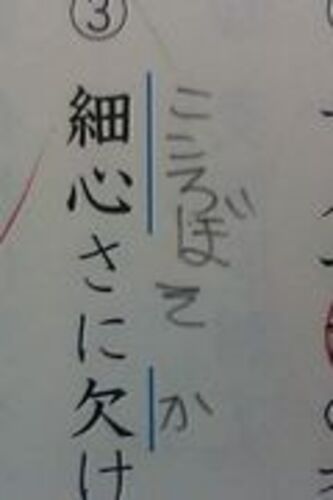 ③ 細心さに欠け
こころぼそ か